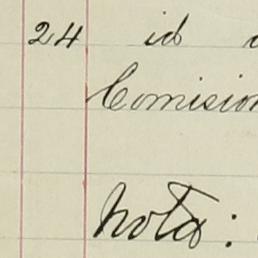 24 id
Comision
Nota: